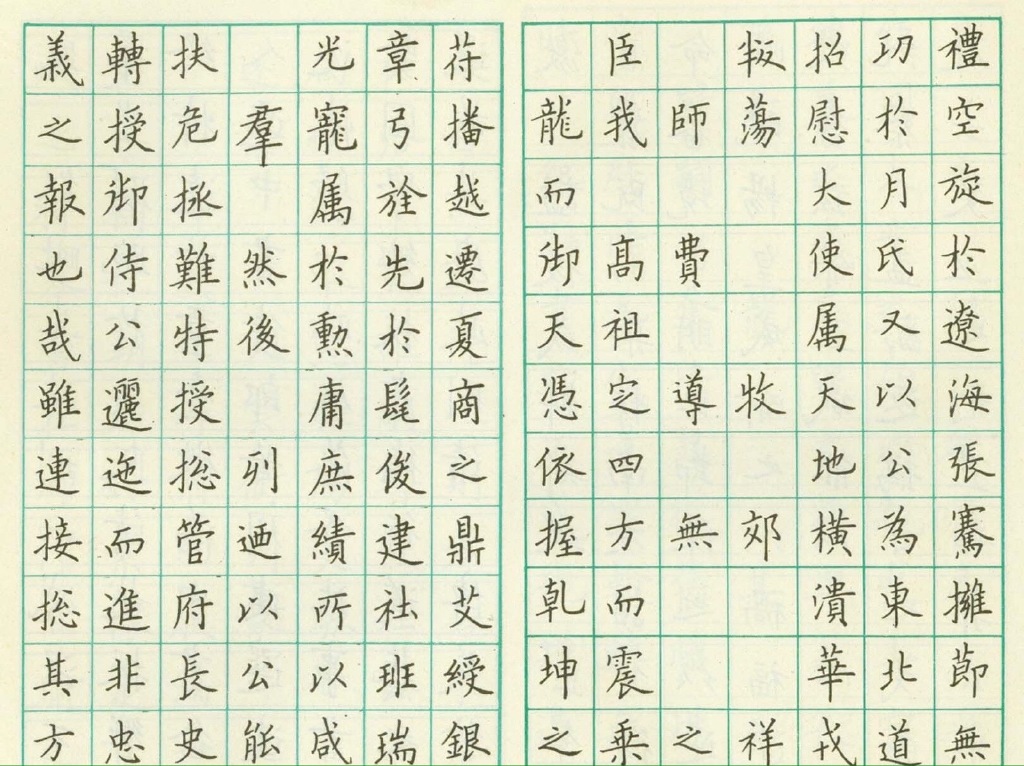 禮空旋於遼海張騫擁節無
功於月氏又以公為東北道
招慰大使属天地横潰華戎
板蕩 牧 郊 祥
師 費 導 無 之
臣我 高祖定四方而震乗
龍而御天憑依握乾坤之
苻播越遷夏商之鼎艾綬銀
章弓旌先於髦俊建社班瑞
光寵属於勲庸庶績所以咸
羣 然後 列迺以公能
扶危拯難特授揔管府長史
轉授御侍公邐迤而進非忠
義之報也哉雖連接揔其方